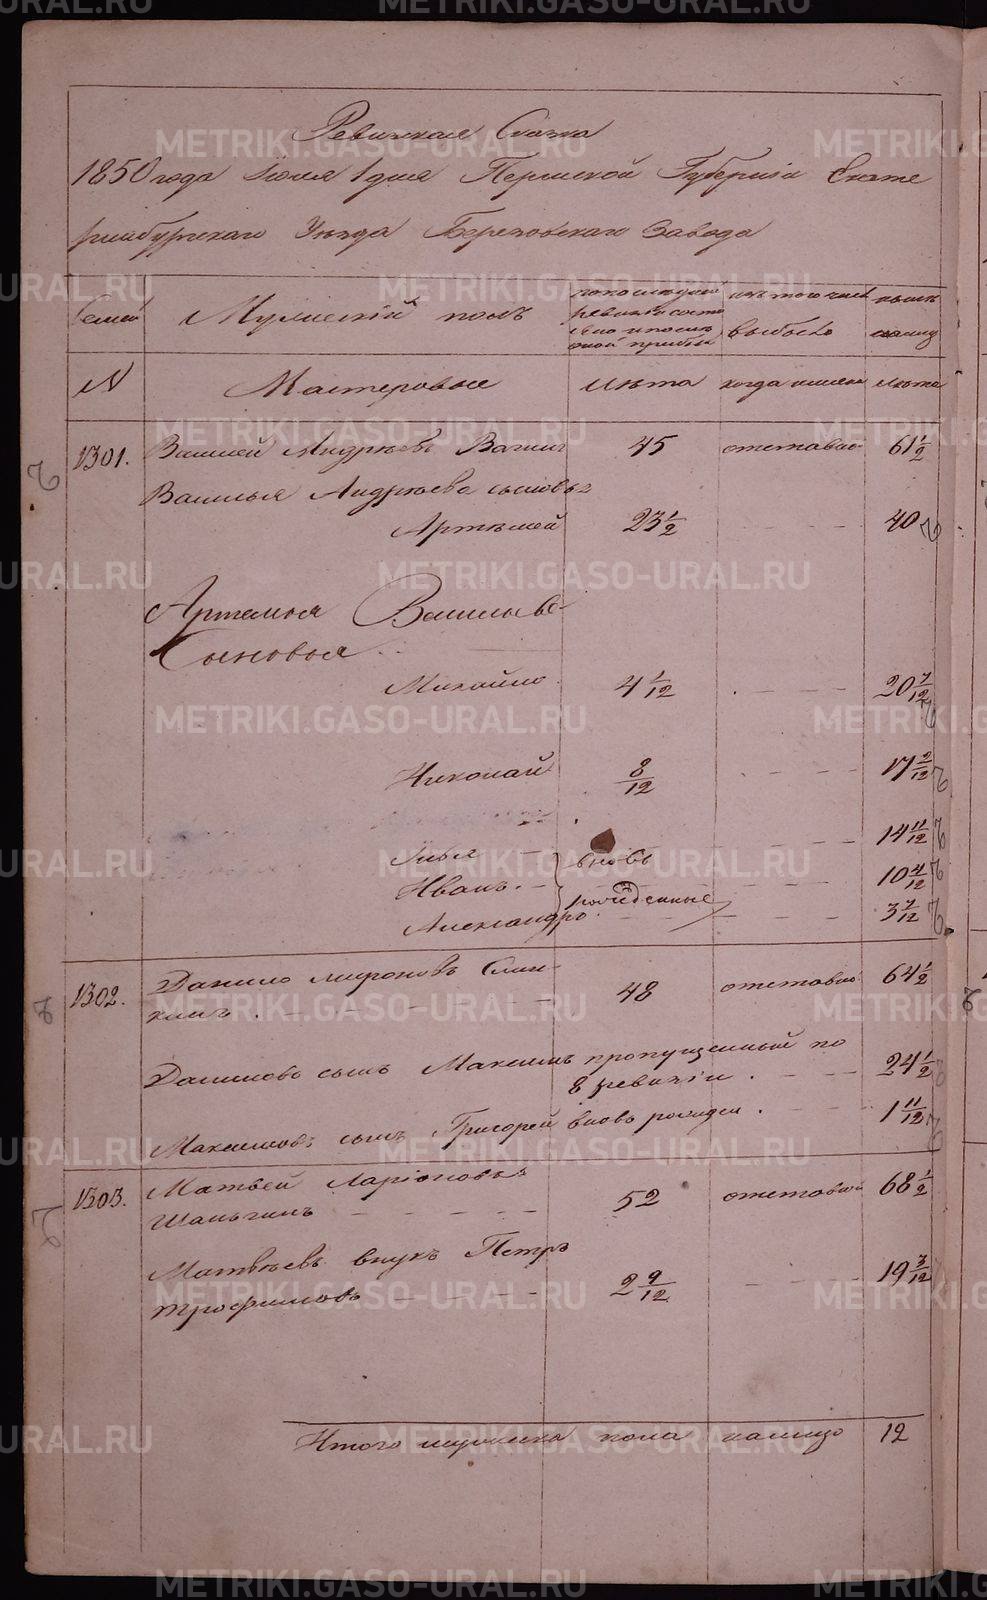 Ревижская Сказка
1850 года Іюля 1 дня Пермской Губерніи Екате
ринбургскаго Уезда Березовскаго Завода
Семей
Мужеский полъ
по последней
ревизіи состо
яло и после
оной прибыло
изъ того числа
выбыло
ныне
налицо
N
Мастеровые
Лета
когда именно
лета
1301.
Василей Андреевъ
45
отставной
61 1/2
Василья Андреева сыновья
Артемей
23 1/2
40
Артемья Василье
Сыновья
Михайло
4 1/12
20 7/12
Николай
8/12
17 2/12
14 11/12
Илья
вновь
Иванъ
рожденные
10 4/12
Александръ
3 7/12
1302.
Данило Мироновъ
48
отставной
64 1/2
Даниловъ сынъ Максимъ пропущенный по
8 ревизіи
24 1/2
Максимовъ сынъ Григорей вновь рожден
1 11/12
1303.
Матвей Ларіоновъ
Шаньгинъ
52
отставной
68 1/2
Матвеевъ внукъ Петръ
Трофимовъ
2 9/12
19 3/12
Итого мужеска пола налицо 12
METRIKI.GASO-URAL.RU